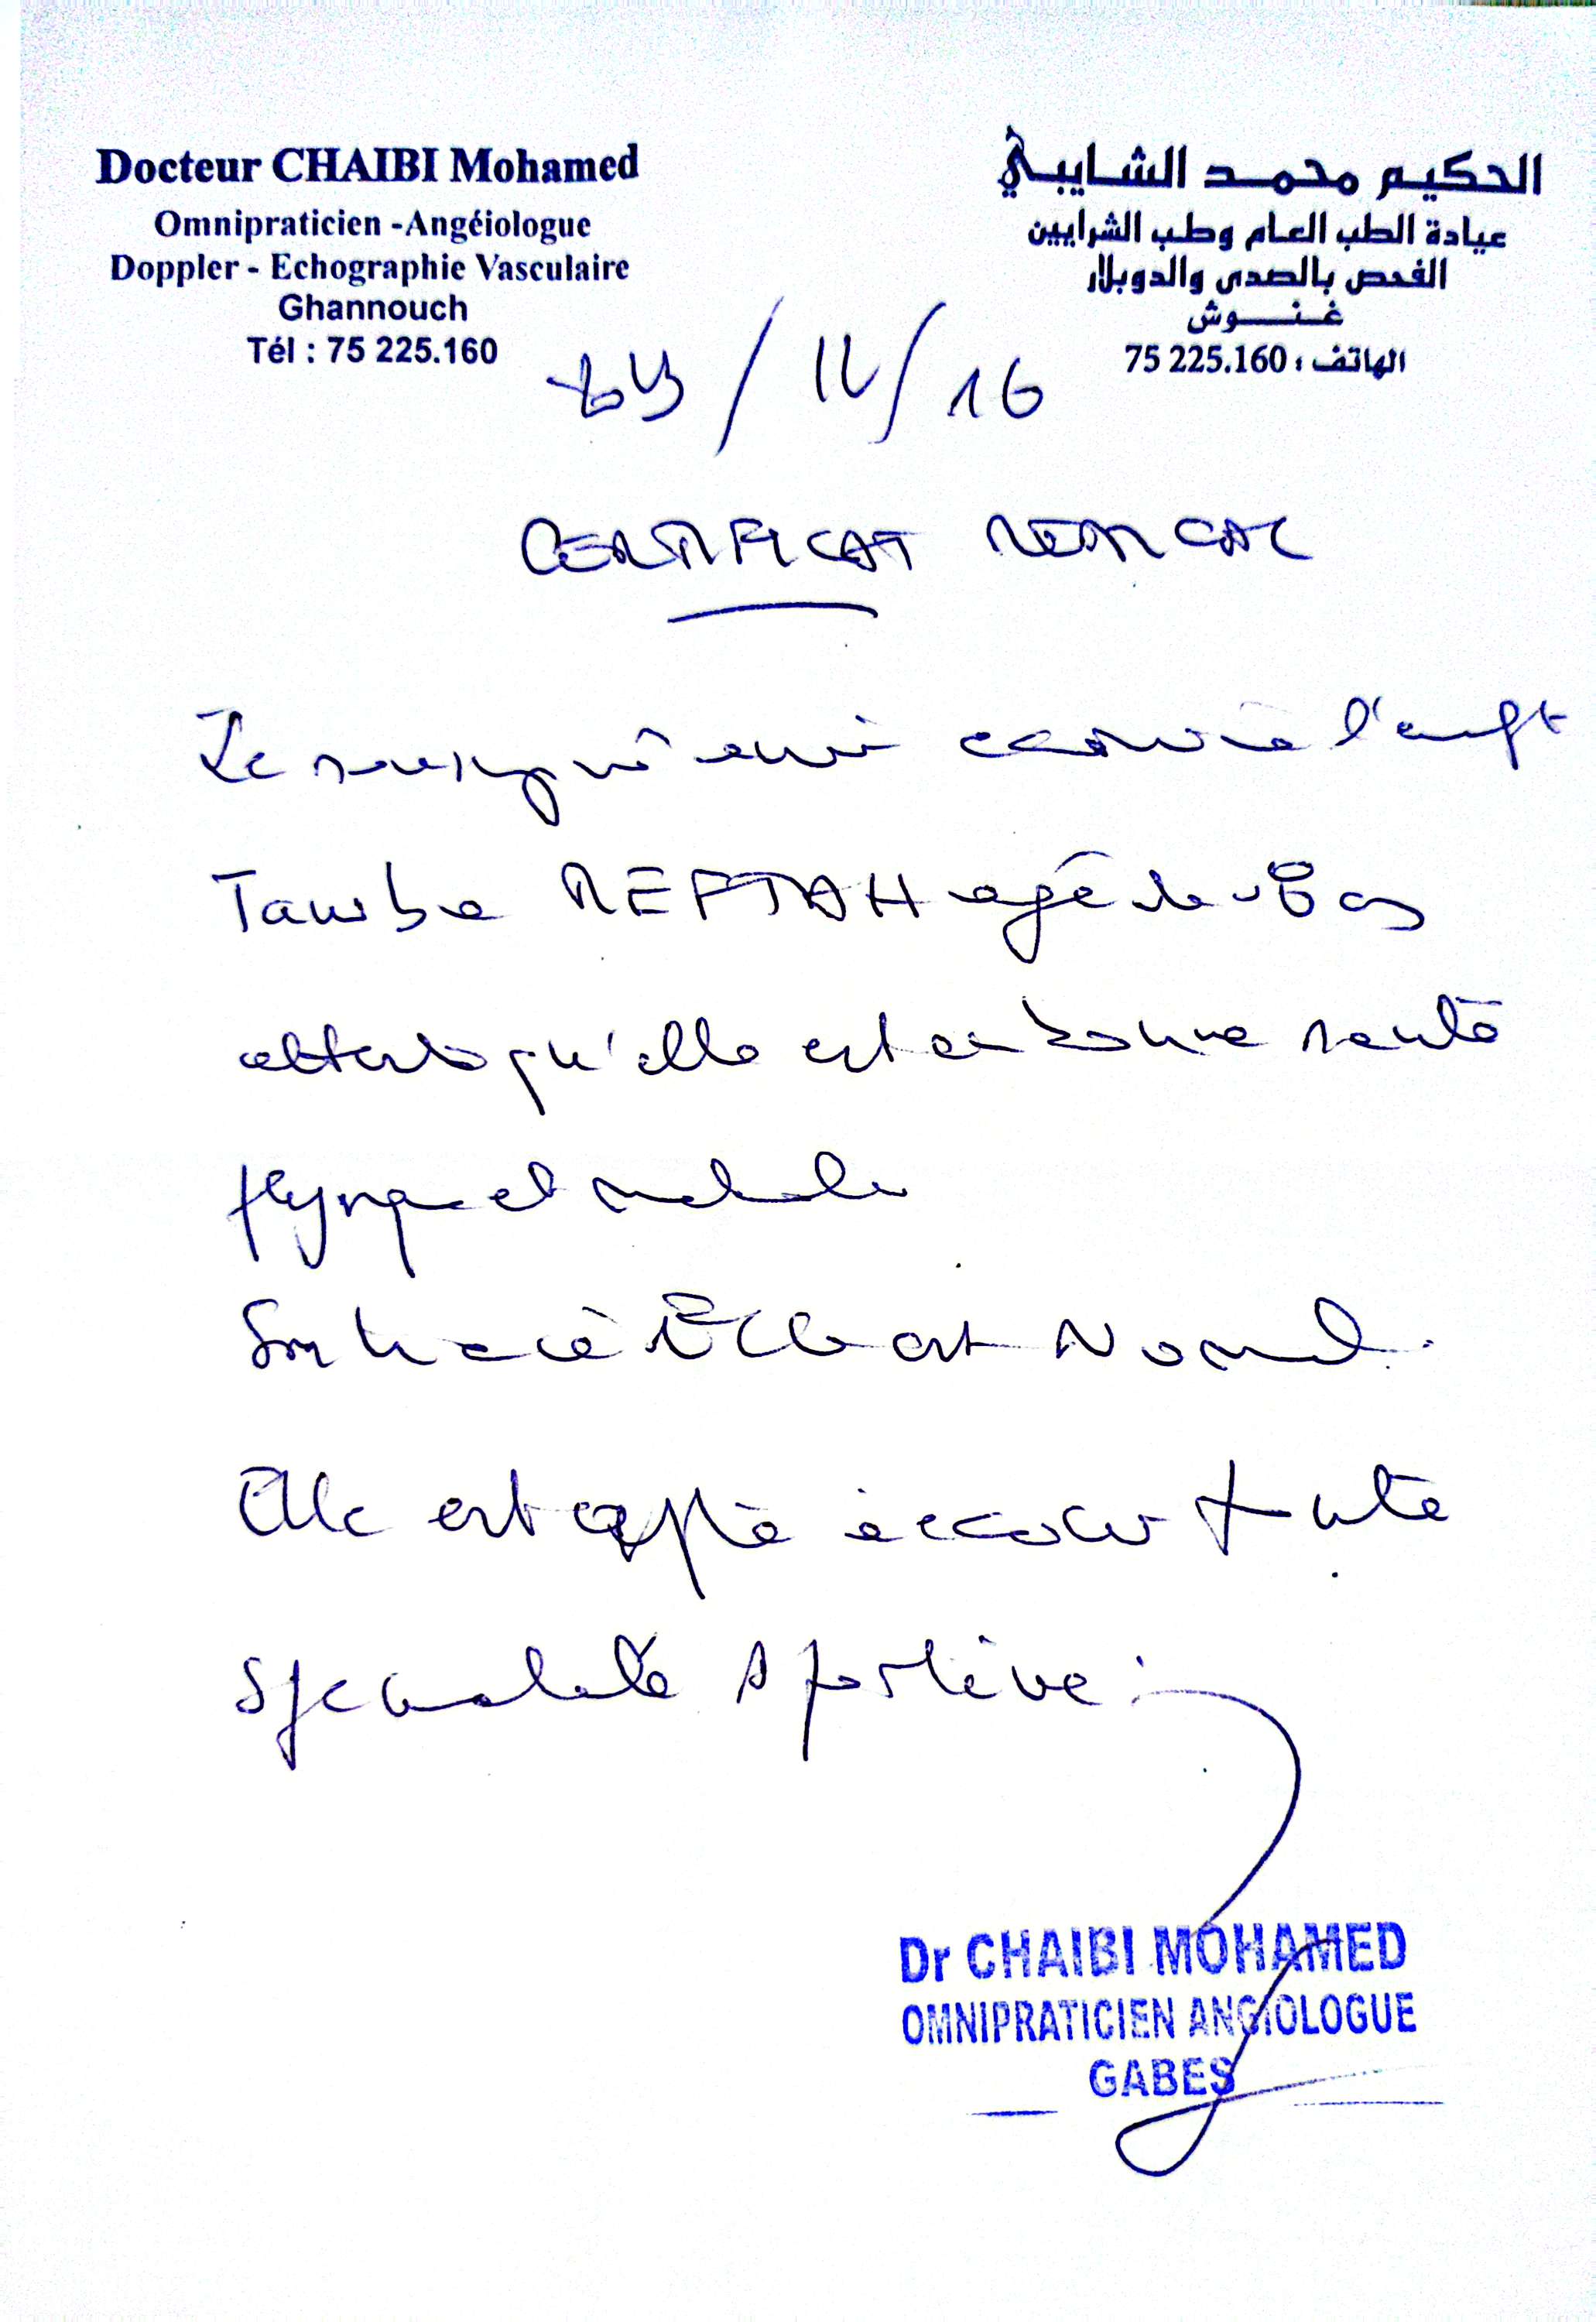 Docteur CHAIBI Mohamed
Omnipraticien -Angéiologue
Doppler - Echographie Vasculaire
Ghannouch
Tél : 75 225.160
الحكيم محمد الشايبي
عيادة الطب العام وطب الشرايين
الفحص بالصدى والدوبلار
غنوش
الهاتف : 75 225.160
/ 16
CERTIFICAT MEDICAL
Je soussigné avoir examiné l'enft
MEFTAH agée de ans
atteste qu'elle est en bonne santé
physique et mentale
est Normal.
Elle est apte à exercer toute
spécialité sportive.
Dr CHAIBI MOHAMED
OMNIPRATICIEN ANGIOLOGUE
GABES